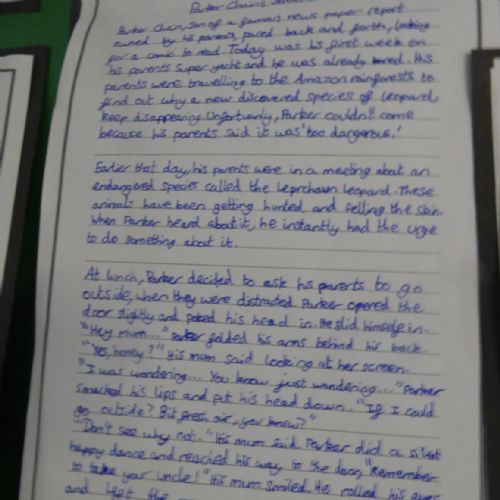 Parker Chains
Parker Chain, son of a famous news paper report
owned by his parents, paced back and forth, looking
for a comic to read. Today was his first week on
his parents super yacht and he was already bored. His
parents were travelling to the Amazon rainforests to
find out why a new discovered species of leopard,
keep disappearing. Unfortunatly, Parker couldn't come
because his parents said it was 'too dangerous.'
Earlier that day, his parents were in a meeting about an
endangered species called the Leprchaun leopard. These
animals have been getting hunted and selling the skin.
When Parker heard about it, he instantly had the urge
to do something about it.
At lunch, Parker decided to ask his parents to go
outside, when they were distracted. Parker opened the
door slightly and poked his head in. He slid himself in.
"Hey mum..." Parker folded his arms behind his back.
"Yes, honey?" His mum said looking at her screen.
"I was wondering... You know just wondering..." Parker
smacked his lips and put his head down. "If I could
go outside? Bit fresh air, you know?"
"Don't see why not." His mum said. Parker did a silent
happy dance and reached his way to the door. "Remember
to take your uncle!" His mum smiled. He rolled his eyes
and left the